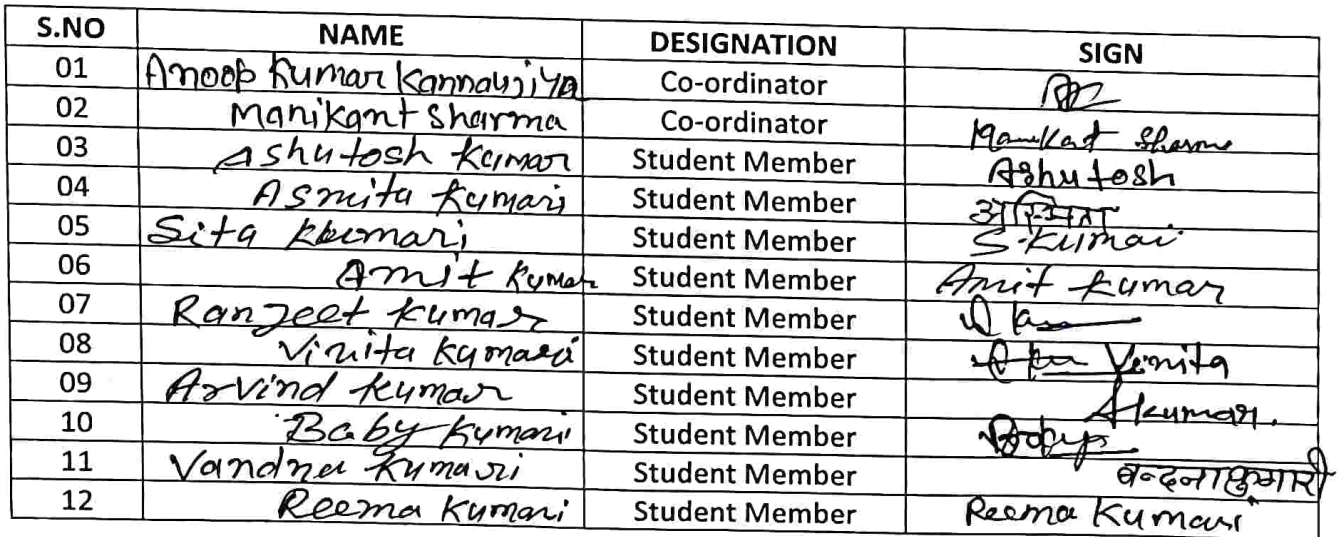 S.NO NAME DESIGNATION SIGN
01 Anoop Kumar Kannaujiya Co-ordinator
02 Manikant Sharma Co-ordinator Manikant Sharma
03 Ashutosh Kumar Student Member Ashutosh
04 Asmita Kumari Student Member अस्मिता
05 Sita Kumari Student Member S. Kumari
06 Amit Kumar Student Member Amit Kumar
07 Ranjeet Kumar Student Member
08 Vinita Kumari Student Member Vinita
09 Arvind Kumar Student Member A Kumar.
10 Baby Kumari Student Member Baby
11 Vandna Kumari Student Member बन्दना कुमारी
12 Reema Kumari Student Member Reema Kumari